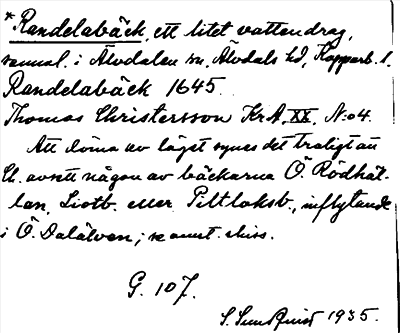 *Randelabäck, ett litet vattendrag,
samml. i Älvdalen sn, Älvdals hd, Kopparb. l.
Randelabäck 1645.
Thomas Christersson KrA, XX, N:o 4.
Att döma av läget synes det troligt att
Ch. avsett någon av bäckarna Ö. Rödhät-
lan, Liotb. eller Piltloksb., inflytande
i Ö. Dalälven; se anst. skiss.
G. 107.
S. Sundquist 1935.